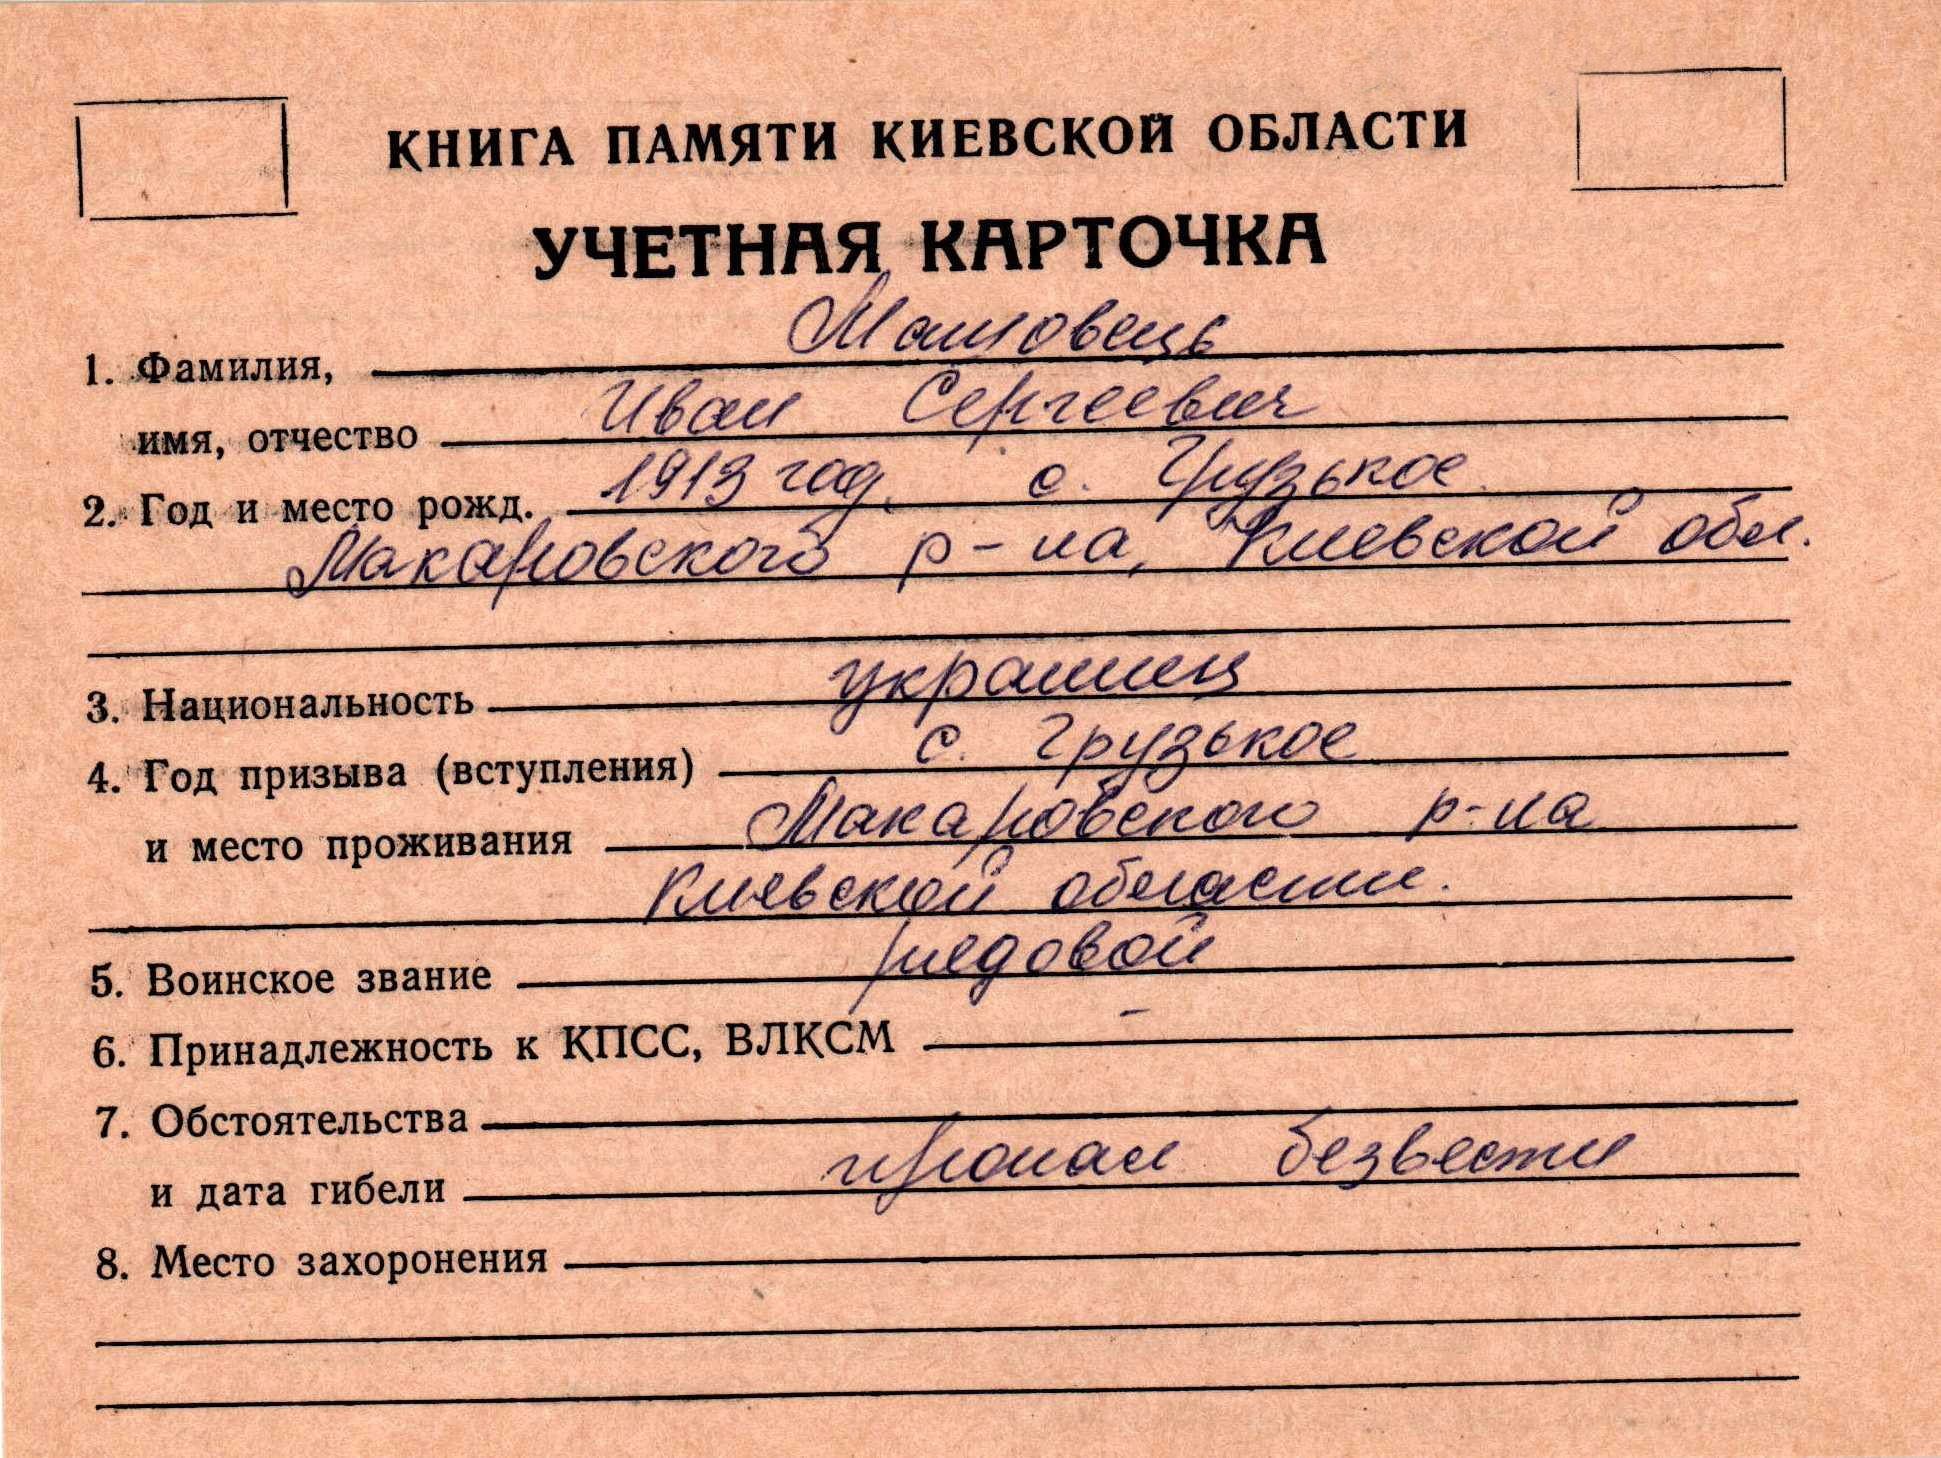 КНИГА ПАМЯТИ КИЕВСКОЙ ОБЛАСТИ
УЧЕТНАЯ КАРТОЧКА
1. Фамилия,
имя, отчество Иван Сергеевич
2. Год и место рожд. 1913 год, с. Грузькое
Макаровского р-на, Киевской обл.
3. Национальность украинец
4. Год призыва (вступления) с. Грузькое
и место проживания Макаровского р-на
Киевской области.
5. Воинское звание рядовой
6. Принадлежность к КПСС, ВЛКСМ -
7. Обстоятельства
и дата гибели пропал безвести
8. Место захоронения